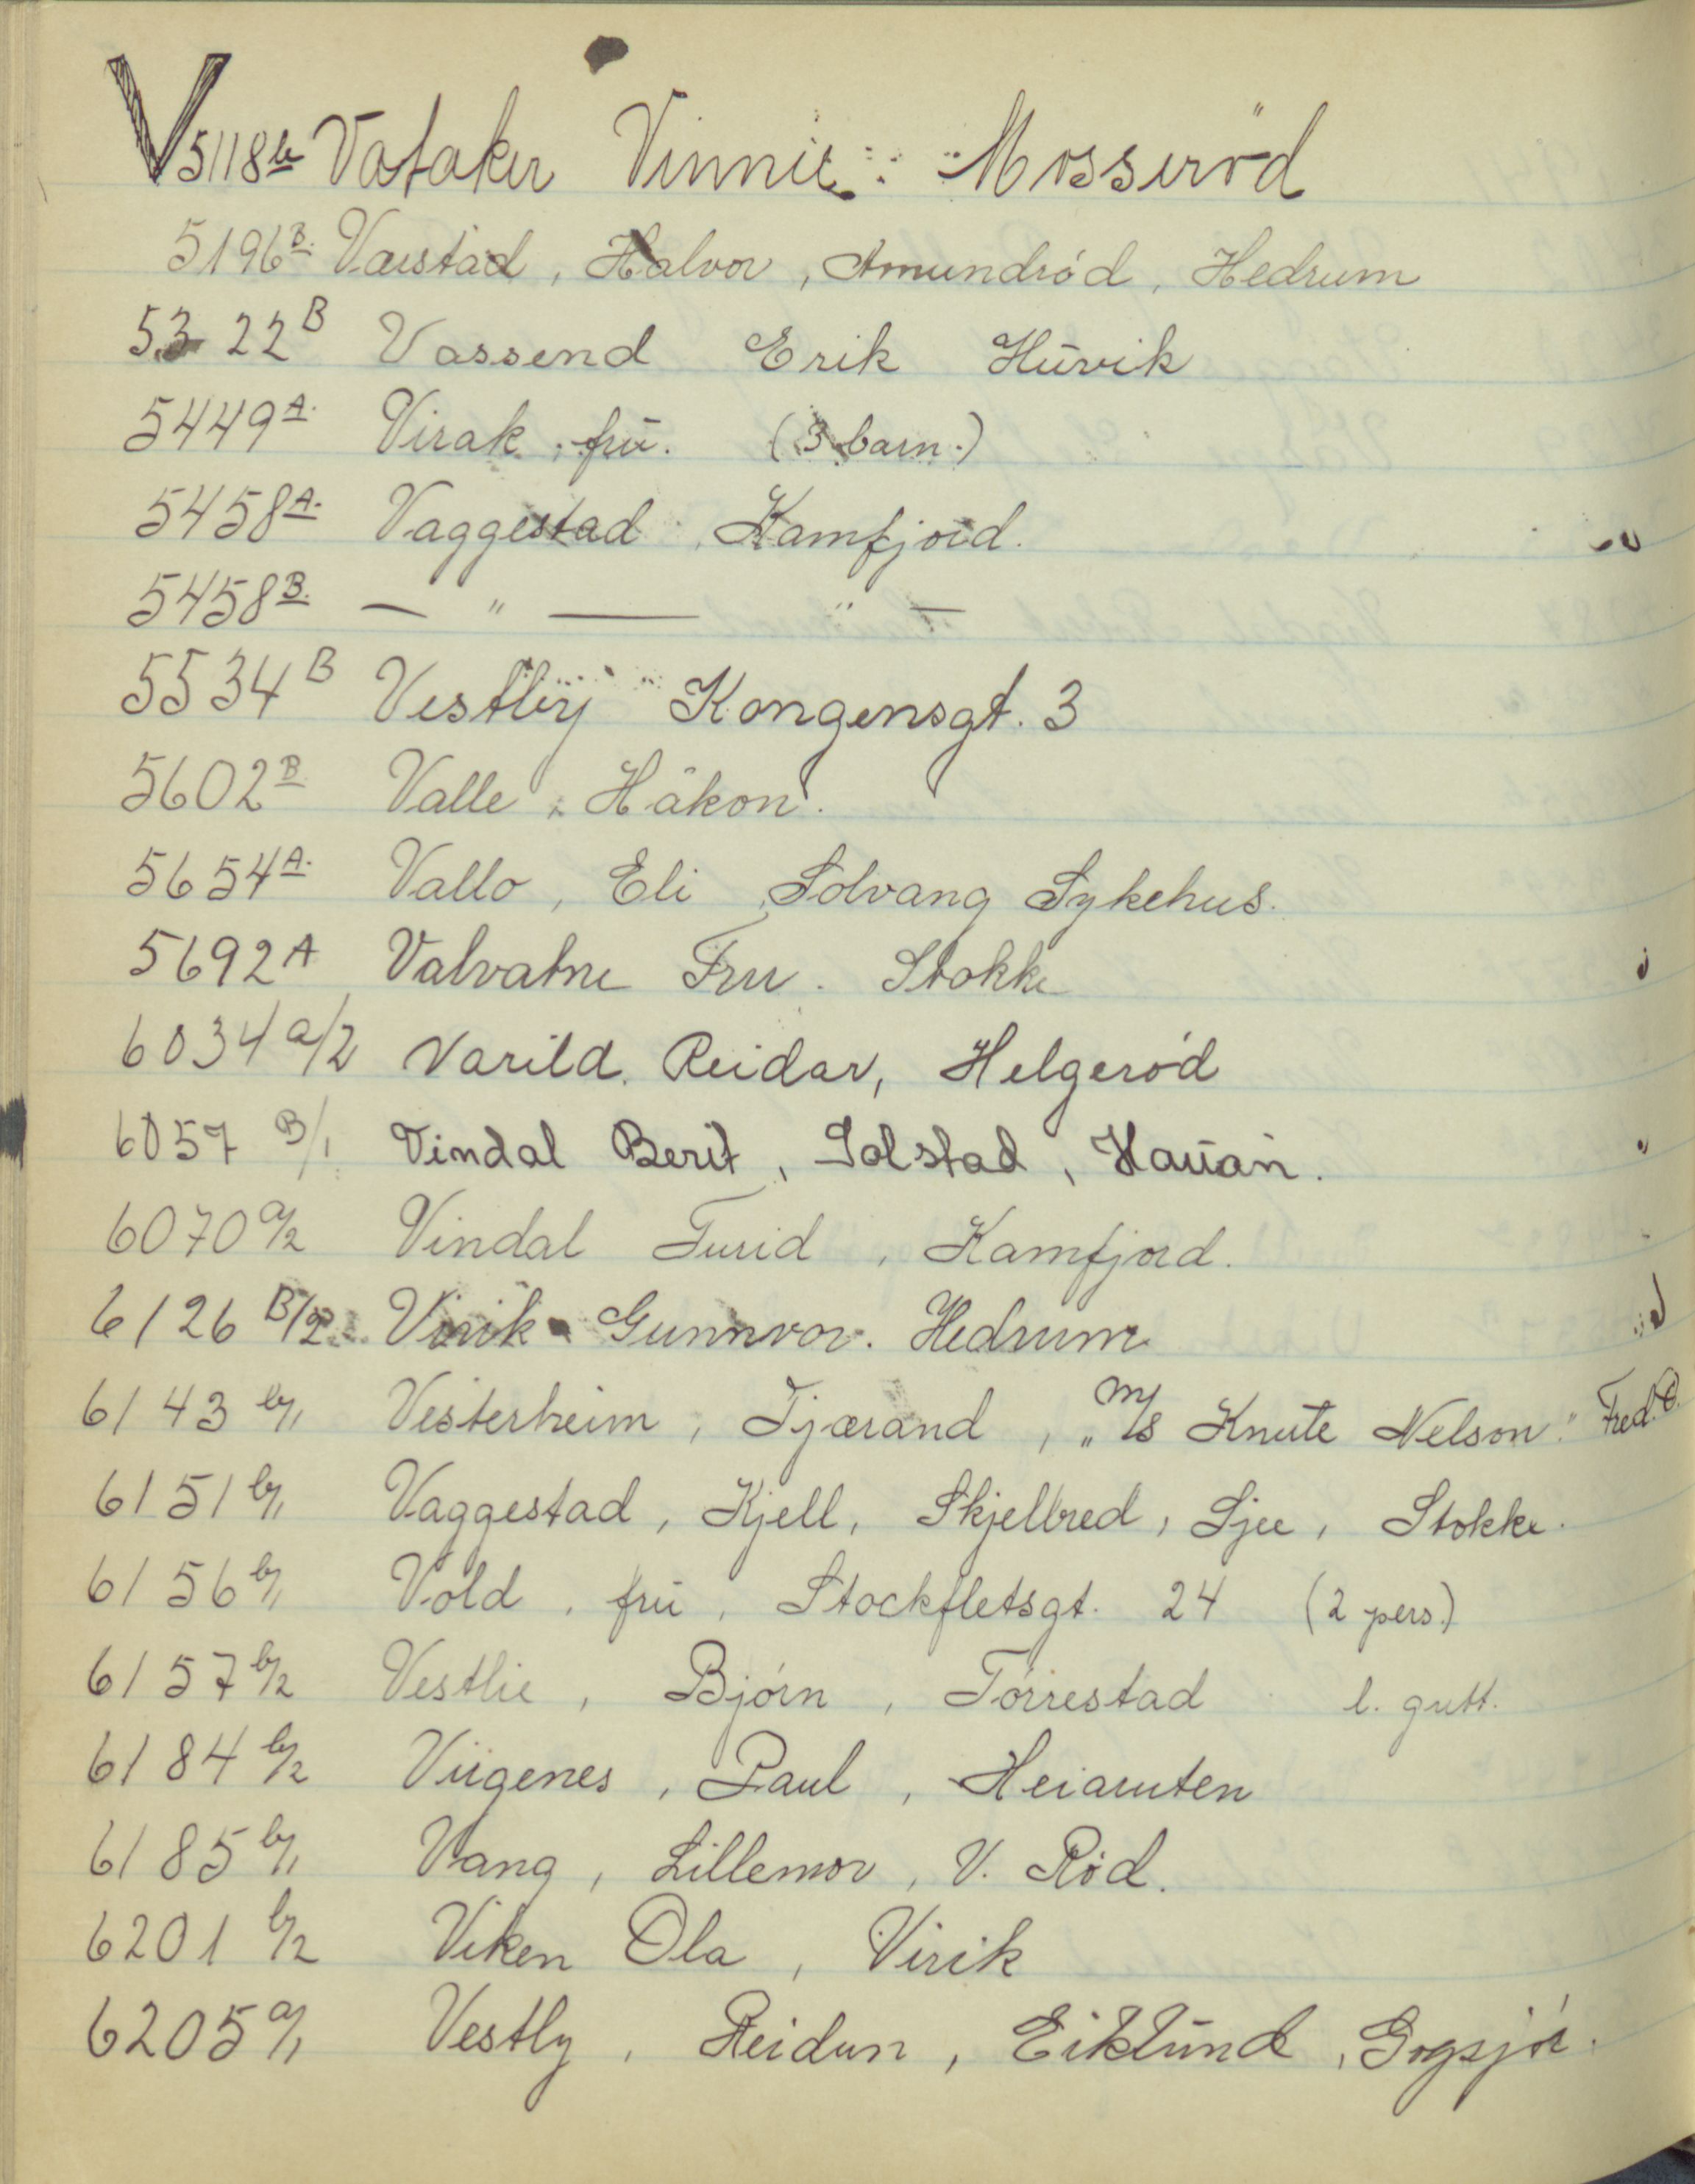 V 5118b Vataker Vinnie Mosserød
5196B.Værstad, Halvor, Amundrød, Hedrum
5322B Vassend Erik Huvik
5449A. Virak, fru. (3 barn.)
5458A. Vaggestad, Kamfjord.
5458B. — " — " —
5534B Vestby Kongensgt. 3
5602B Valle, Håkon.
5654A. Vallo, Eli, Solvang Sykehus.
5692A Valvatne Fru. Stokke
6034 a/2 Varild, Reidar, Helgerød
6057 B/1 Vindal Berit, Solstad, Hauan.
6070 a/2 Vindal Turid, Kamfjord.
6126 B/2 Virik Gunnvor. Hedrum
6143 b/1 Vesterheim, Tjærand, "M/S Knute Nelson" Fred.
6151 b/1 Vaggestad, Kjell, Skjellbred, Sjee, Stokke.
6156 b/1 Vold, fru, Stockfletsgt. 24 (2 pers.)
6157 b/2 Vestlie, Bjørn, Torrestad l. gutt.
6184 b/2 Viigenes, Paul, Heiaruten
6185 b/1 Vang, Lillemor, V. Rød.
6201 b/2 Viken Ola, Virik
6205 a/1 Vestly, Reidun, Eiklund, Gogsjø.